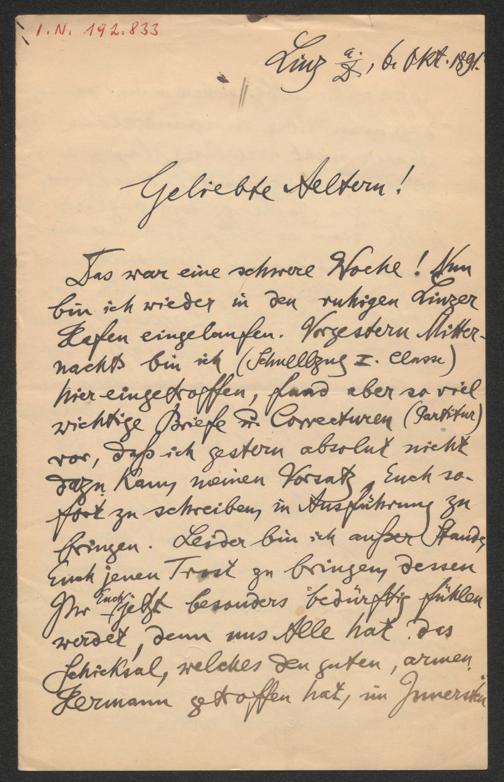 I.N. 192.833
Linz a/D, 6. Okt. 1891.
Geliebte Aeltern!
Das war eine schwere Woche! Nun
bin ich wieder in den ruhigen Linzer
Hafen eingelaufen. Vorgestern Mitter-
nachts bin ich (Schnellzug I. Classe)
hier eingetroffen, fand aber so viel
wichtige Briefe u. Correcturen (Partitur)
vor, daß ich gestern absolut nicht
dazu kam, meinen Vorsatz, Euch so-
fort zu schreiben, in Ausführung zu
bringen. Leider bin ich außer Stande,
Euch jenen Trost zu bringen, dessen
Ihr Euch jetzt besonders bedürftig fühlen
werdet, denn uns Alle hat das
Schicksal, welches den guten, armen
Hermann getroffen hat, im Innersten